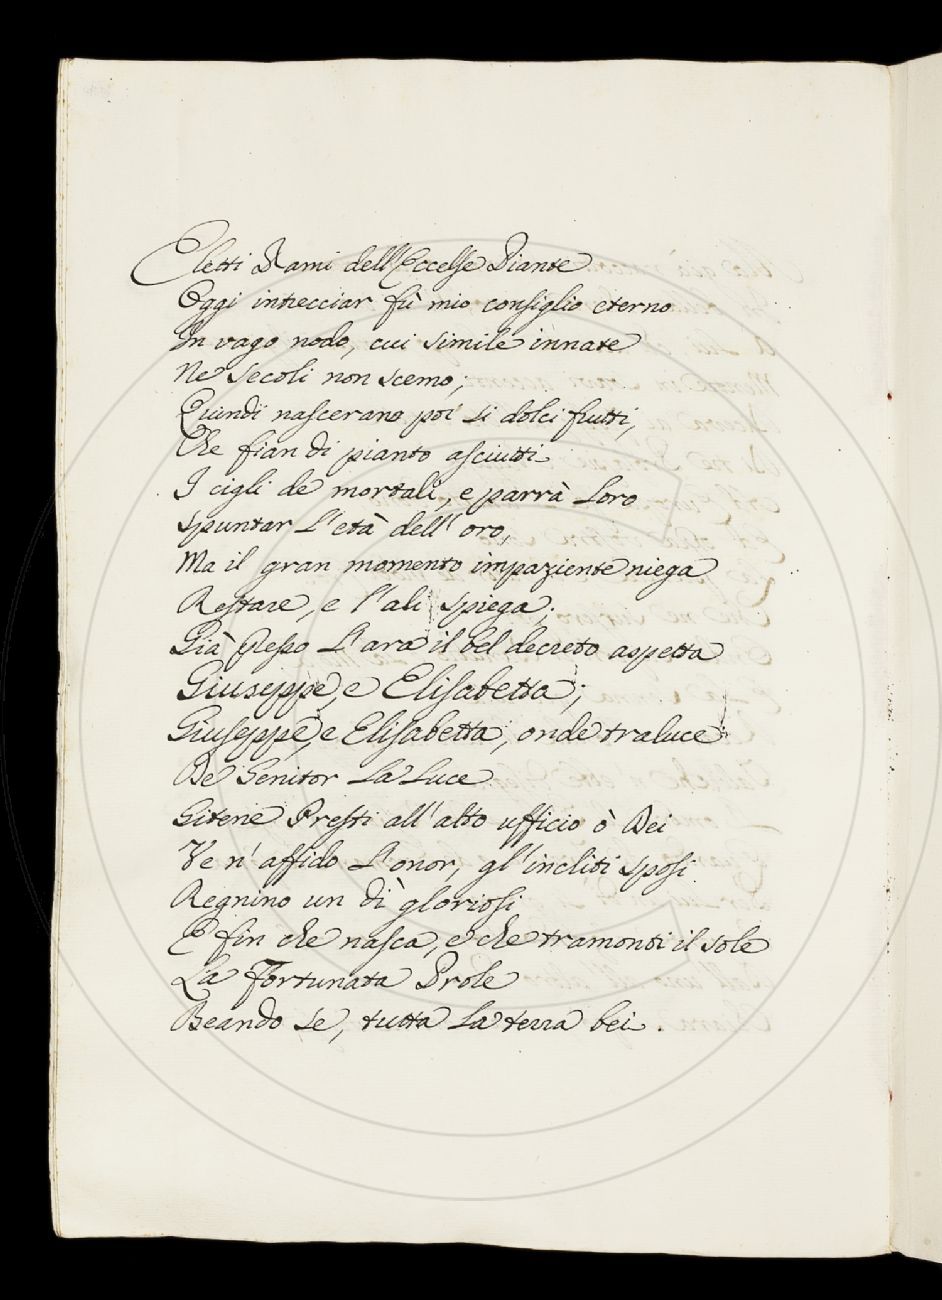 Eletti Rami dell'Eccelse Piante
Oggi intrecciar fù mio consiglio eterno
In vago nodo, cui simile innante
Ne Secoli non scerno;
Quindi nascerano poi si dolci frutti,
Che fian di pianto asciutti
I cigli de mortali, e parrà Loro
Spuntar L'età dell'oro,
Ma il gran momento impaziente niega
Restare, e l'ali spiega;
Già Presso L'ara il bel decreto aspetta
Giuseppe, e Elisabetta;
Giuseppe, e Elisabetta, onde traluce
De Genitor La Luce
Gitene Presti all'alto ufficio ò Dei
Ve n'affido L'onor, gl'incliti sposi
Regnino un dì gloriosi
E fin che nasca, e che tramonti il sole
La Fortunata Prole
Beando Se, tutta La terra bei.